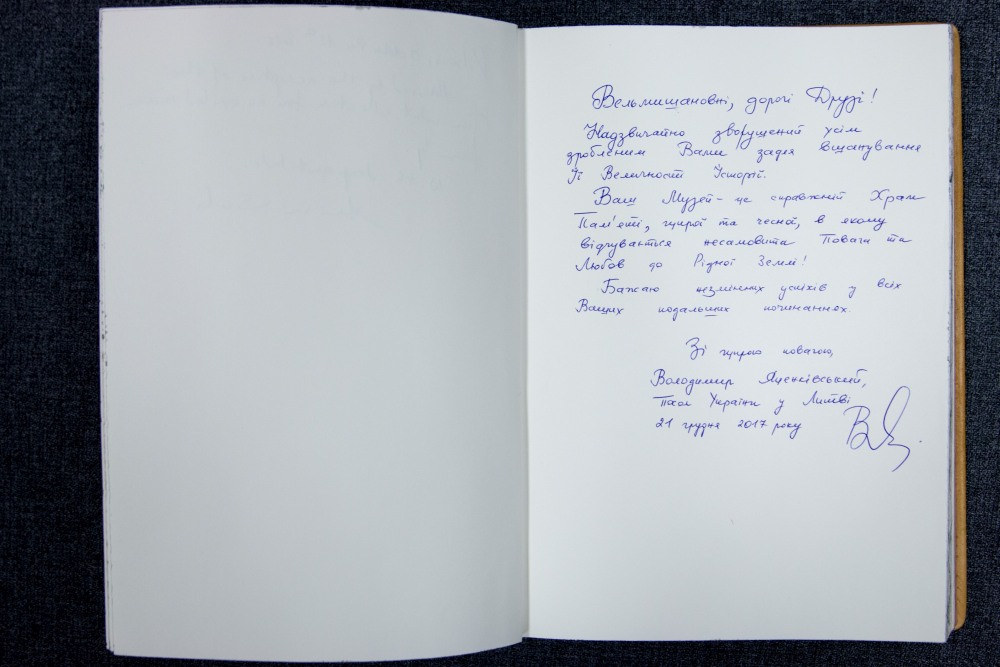 Вельмишановні, дорогі Друзі!
Надзвичайно зворушений усім
зробленим Вами задля вшанування
Її Величності Історії.
Ваш Музей - це справжній Храм
Пам'яті, щирої та чесної, в якому
відчувається несамовита Повага та
Любов до Рідної Землі!
Бажаю незмінних успіхів у всіх
Ваших подальших починаннях.
Зі щирою повагою,
Володимир Яценківський,
Посол України у Литві
21 грудня 2017 року